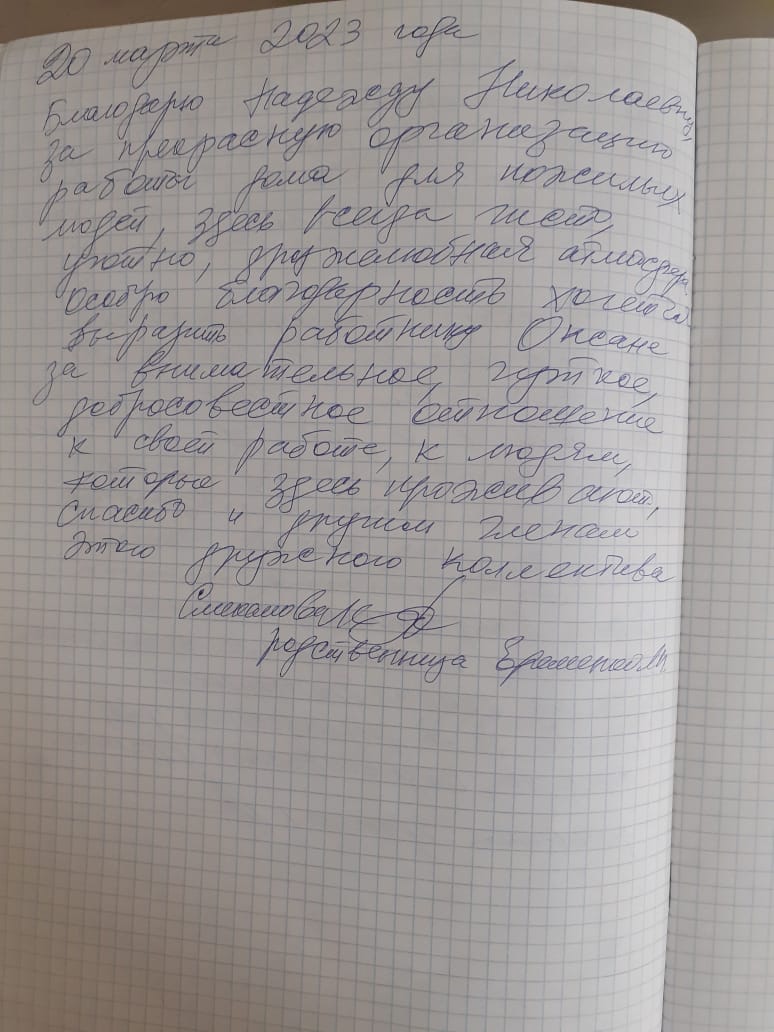 20 марта 2023 года
Благодарю Надежду Николаевну,
за прекрасную организацию
работы дома для пожилых
людей, здесь всегда чисто,
уютно, дружелюбная атмосфера.
Особую благодарность хочется
выразить работнику Оксане
за внимательное, чуткое,
добросовестное отношение
к своей работе, к людям,
которые здесь проживают,
Спасибо и другим членам
этого дружного коллектива
родственница